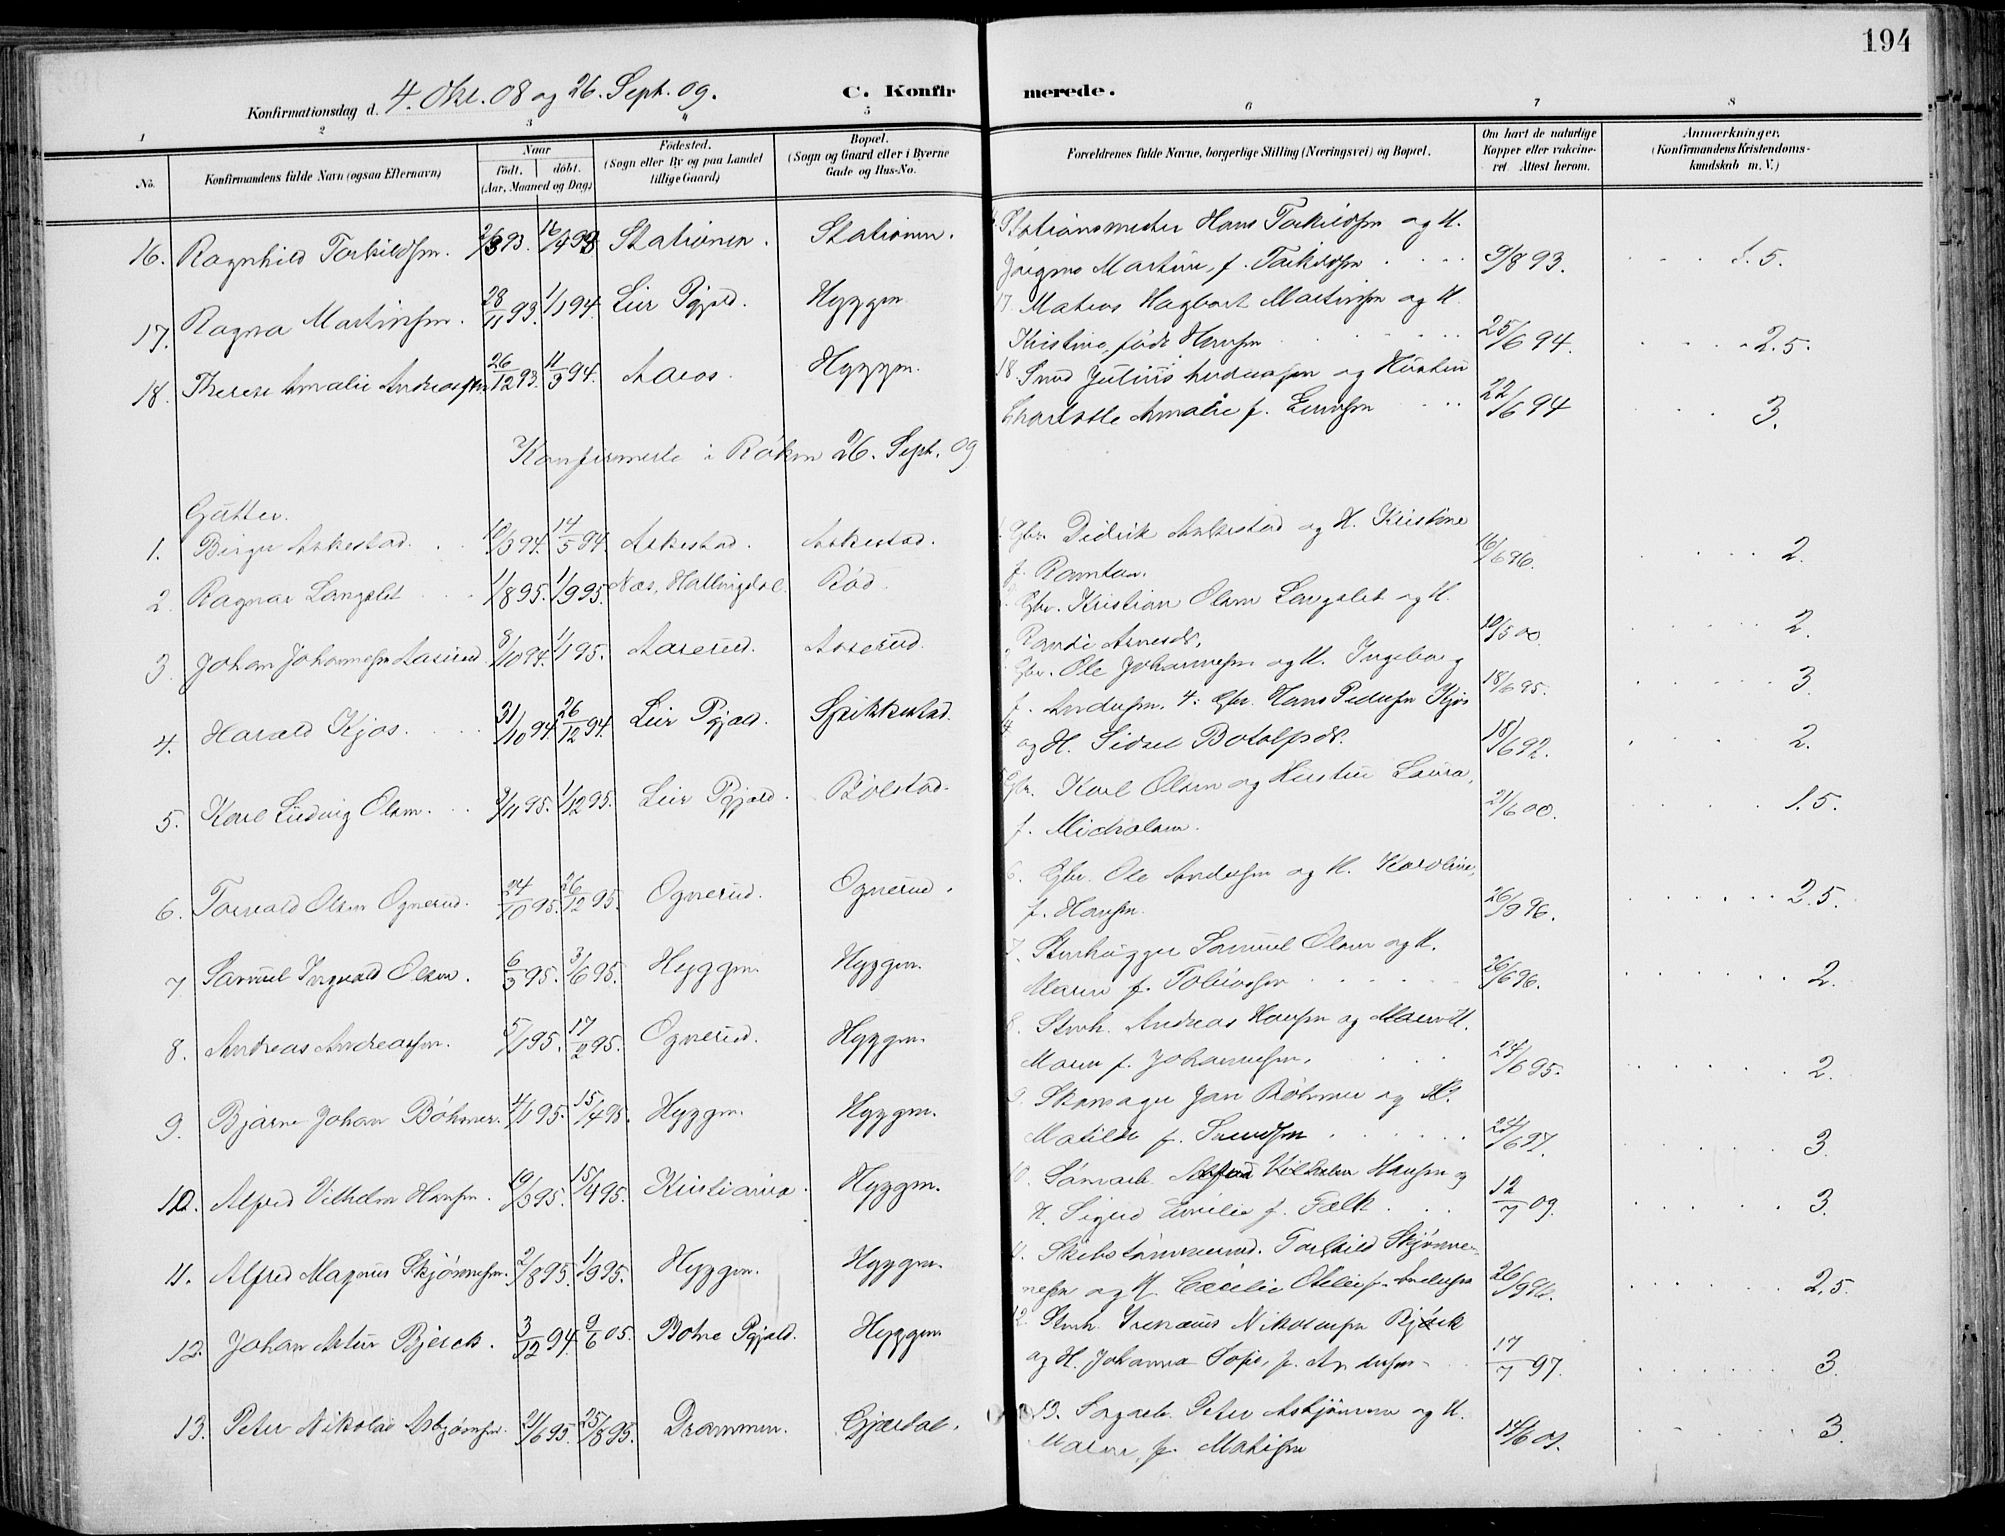 194
Konfirmationsdag d. 4. Okt. 08 og 26. Sept. 09.
C. Konfirmerede.
1 2 3 4 5 6 7 8
No.
Konfirmandens fulde Navn (ogsaa Efternavn)
Naar
født, døbt.
(Aar, Maaned og Dag)
Fødested.
(Sogn eller By og paa Landet
tillige Gaard)
Bopæl.
(Sogn og Gaard eller i Byerne
Gade og Hus-No.
Forældrenes fulde Navne, borgerlige Stilling (Næringsvei) og Bopæl.
Om havt de naturlige
Kopper eller vakcine-
ret Attest herom.
Anmærkninger.
(Konfirmandens Kristendoms-
kundskab m. V.)
16. Ragnhild Torkildsen. 93. 16/4 93 Stationen. Stationen. Stationsmester Hans Torkildsen og H.
Martine, f. Torkildsen 9/8 93. 1.5.
17. Ragna Martinsen. 28/11 93. 1/1 94. Lier Pgjæld. Hyggen. 17. Mateos Hagbart Martinsen og H.
Kristine, født Hansen 25/6 94. 2.5.
18. Therese Amalie Andreassen 26/12 93. 11/3 94. Aaros. Hyggen. 18. Smed Julius Andreassen og Hustru
Charlotte Amalie f. Evensen 22/6 94 3.
Konfirmerte i Røken 26. Sept. 09
Gutter.
1. Birger Askestad. 10/3 94. 14/5 94. Askestad. Askestad. Gbr. Didrik Askestad og H. Kristine
f. Ramton. 16/6 96. 2.
2. Ragnar Langslet 1/8 95. 1/9 95. Næs, Hallingdal. Rød. Gbr. Kristian Olsen Langslet og H.
Randi Arnesdt. 19/5 00. 2.
3. Johan Johannesen Aaserud 8/10 94. 1/1 95. Aaserud. Aaserud. Gbr. Ole Johannesen og H. Ingeborg
f. Andersen. 18/6 95. 3
4. Harald Kjos. 31/10 94. 26/12 94. Lier Pgjæld. Spikkestad. 4. Gbr. Hans Pedersen Kjos
og H. Sidsel Botolfsdt. 18/6 92. 2.
5. Karl Ludvig Olsen. 3/11 95. 1/12 95. Lier Pgjæld. Bølstad. Gbr. Karl Olsen og Hustru Laura,
f. Mickelsen. 21/6 00. 1.5.
6. Torvald Olsen Ognerud. 24/10 95. 26/12 95. Ognerud. Ognerud. 6. Gbr. Ole Andersen og H. Karoline,
f. Hansen. 26/9 96. 2.5.
7 Samuel Ingvald Olsen. 6/3 95. 3/6 95. Hyggen. Hyggen. 7. Stenhugger Samuel Olsen og H.
Maren f. Tobiassen 26/6 96. 2.
8. Andreas Andreassen. 5/1 95. 17/2 95. Ognerud. Hyggen. 8. Stenh. Andreas Hansen og H.
Maren f. Johannesen. 24/6 95. 2.
9. Bjarne Johan Bøhmer. 4/1 95. 15/4 95. Hyggen. Hyggen. 9. Skomager Jan Bøhmer og H.
Matilde f. Svendsen 24/6 97. 3.
10. Alfred Vilhelm Hansen. 19/3 95. 15/4 95. Kristiania. Hyggen. 10. Tømarb. Alfred Vilhelm Hansen og
H. Sigrid Emilie f. Falk. 12/7 09. 3.
11. Alfred Magnus Skjønnesen. 2/8 95. 1/9 95. Hyggen. Hyggen. 11. Skibstømmermd. Torkild Skjønne-
nesen og H. Cæcilie Otilie f. Andersen 26/9 96. 2.5.
12. Johan Artur Bjerck. 3/12 94. 9/6 05. Botne Pgjæld. Hyggen 12. Stenh. Irenæus Nikolaisen Bjerck
og H. Johanna Sofie, f. Andersen 17/7 97. 3.
13. Peter Nikolai Asbjørnsen. 21/6 95. 25/8 95. Drammen. Gjærdal. 13. Sagarb. Peter Asbjørnsen og H.
Maren, f. Mathisen 14/6 01. 3.